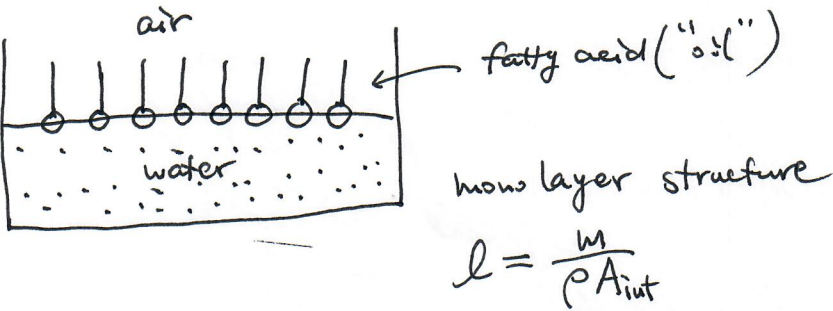 air
fatty acid ("oil")
water
mono layer structure
l = m / ρA_int